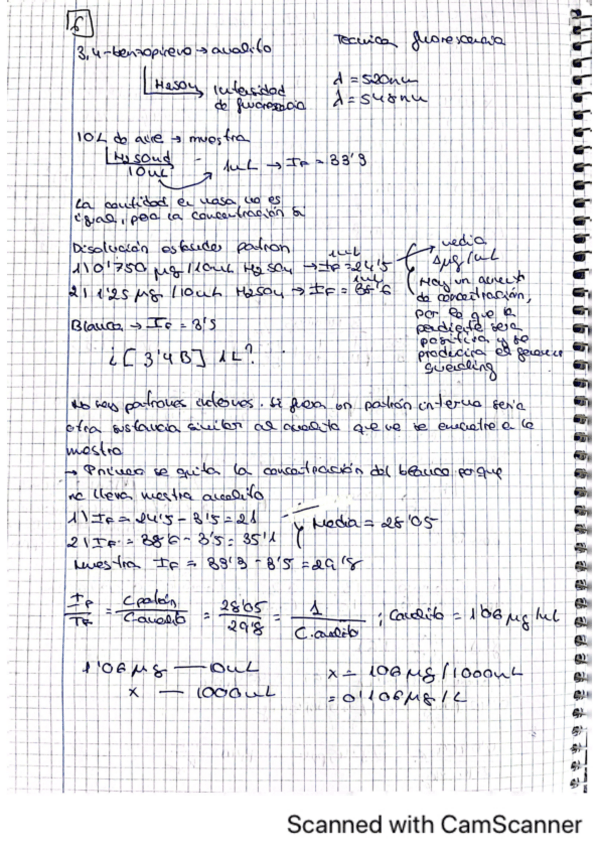 6
3,4-benzopireno → analito
Tecnica fluorescencia
H2SO4 → Intensidad
de fluorescencia
λ = 520nm
λ = 548nm
10L de aire → muestra
H2SO4
10mL
1mL → IF = 33'3
La cantidad en masa no es
igual, pero la concentración sí
Disolución estándar patrón
1) 0'750 μg/10mL H2SO4 → IF = 24'5
1mL
2) 1'25 μg/10mL H2SO4 → IF = 38'6
1mL
media
1μg/mL
Hay un aumento
de concentración,
por lo que la
pendiente será
positiva y se
producirá el
quenching
Blanco → IF = 3'5
¿[3'4B] 1L?
No hay patrones internos. Si fuera un patrón interno sería
otra sustancia similar al analito que no se encuentre en la
muestra
→ Primero se quita la concentración del blanco porque
no lleva muestra analito
1) IF = 24'5 - 3'5 = 21
2) IF = 38'6 - 3'5 = 35'1
Media = 28'05
Muestra IF = 33'3 - 3'5 = 29'8
IP/IF = Cpatrón/C.analito = 28'05/29'8 = 1/C.analito ; Canalito = 1'06 μg/mL
1'06 μg — 10mL
x — 1000mL
x = 106 μg/1000mL
= 0'106 μg/L
Scanned with CamScanner